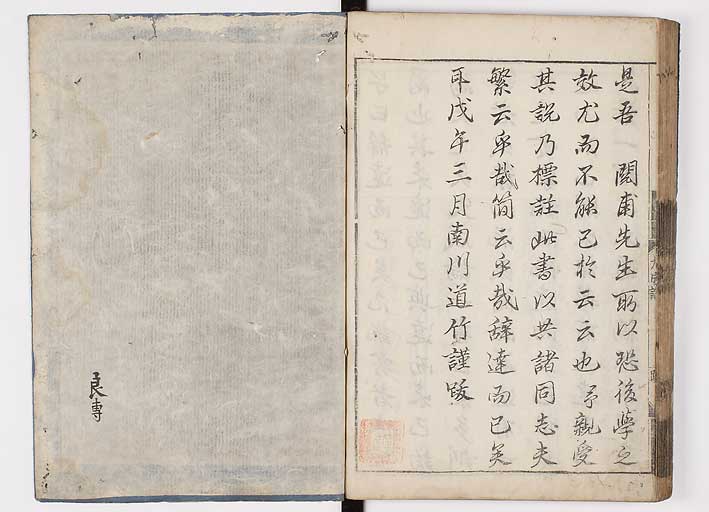 是吾一閑甫先生所以恐後學之
效尤而不能已於云云也予親受
其說乃標註此書以共諸同志夫
繁云乎哉簡云乎哉辭達而已矣
戊午三月南川道竹謹跋
良專